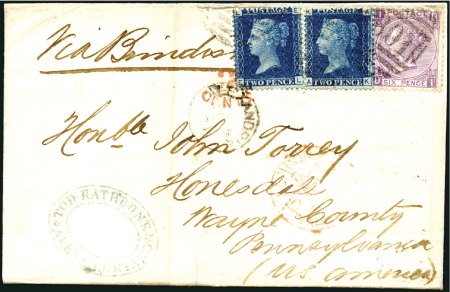 Via Brindisi
POSTAGE
TWO PENCE
POSTAGE
TWO PENCE
POSTAGE
SIX PENCE
Honble John Torrey
Honesdale
Wayne County
Pennsylvania
(U.S. america)
TOD RATHBONE & CO
ALEXANDRIA